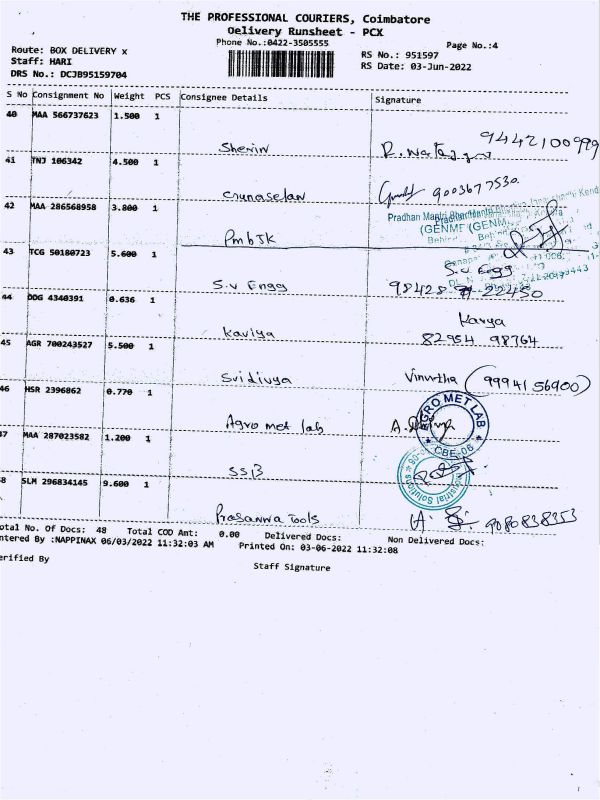 THE PROFESSIONAL COURIERS, Coimbatore
Oelivery Runsheet - PCX
Phone No.:0422-3505555
Page No.:4
Route: BOX DELIVERY x
RS No.: 951597
Staff: HARI
RS Date: 03-Jun-2022
DRS No.: DCJB95159704
S No Consignment No Weight PCS Consignee Details Signature
40 MAA 566737623 1.500 1
Sherin 9442100999
41 TNJ 106342 4.500 1
Gunaselan 9003677530
42 MAA 286568958 3.800 1
Pradhan Mantri
(GENM
PmbJK
43 TCG 50180723 5.600 1
S.v Engg
S.v Engg 98428 22450
44 DDG 4340391 0.636 1
Kavya
Kaviya 82954 98764
45 AGR 700243527 5.500 1
Sridivya Vinutha (9994156900)
46 HSR 2396862 0.770 1
Agro met lab
AGRO MET LAB
CBE-06
47 MAA 287023582 1.200 1
SSB
Industrial Solutions
48 SLM 296834145 9.600 1
Prasanna Tools 9080838353
otal No. Of Docs: 48 Total COD Amt: 0.00 Delivered Docs: Non Delivered Docs:
ntered By :NAPPINAX 06/03/2022 11:32:03 AM Printed On: 03-06-2022 11:32:08
erified By
Staff Signature